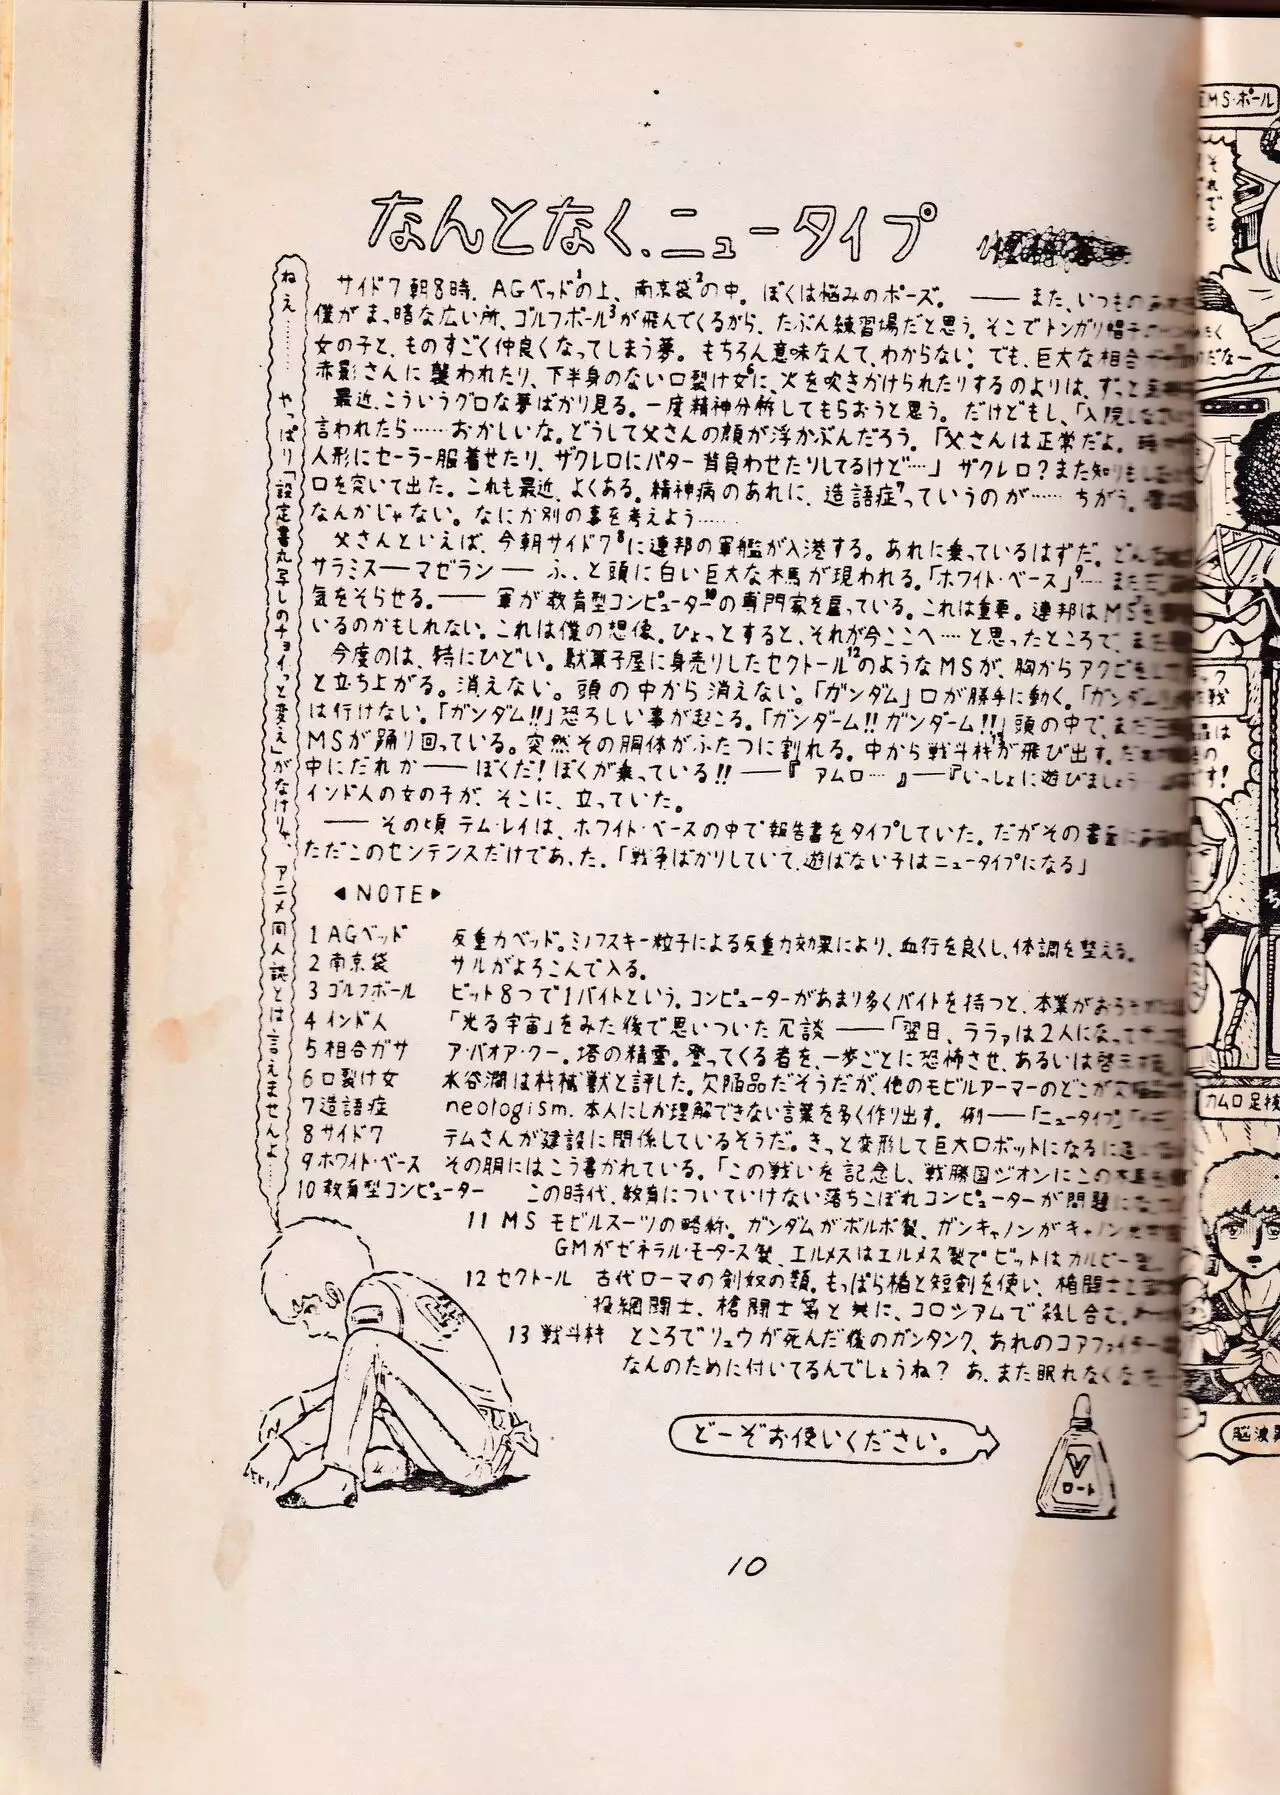 なんとなく、ニュータイプ
ねえ……… やっぱり「設定書丸写しのチョイっと変え」がなけりゃ、アニメ同人誌とは言えませんよ……
サイド7 朝8時、AGベッド1の上、南京袋2の中。ぼくは悩みのポーズ。――また、いつもの
僕がまっ暗な広い所、ゴルフボール3が飛んでくるから、たぶん練習場だと思う。そこでトンガリ帽子
女の子と、ものすごく仲良くなってしまう夢。もちろん意味なんて、わからない。でも、巨大な相合
赤影さんに襲われたり、下半身のない口裂け女6に、火を吹きかけられたりするのよりは、ずっと
最近、こういうグロな夢ばかり見る。一度精神分析してもらおうと思う。だけどもし、「入院しなさい
言われたら……おかしいな。どうして父さんの顔が浮かぶんだろう。「父さんは正常だよ。
人形にセーラー服着せたり、ザクレロにバター背負わせたりしてるけど…」ザクレロ?また知りもしない
口を突いて出た。これも最近、よくある。精神病のあれに、造語症7っていうのが……ちがう。
なんかじゃない。なにか別の事を考えよう……
父さんといえば、今朝サイド7 8に連邦の軍艦が入港する。あれに乗っているはずだ。どんな
サラミス――マゼラン――ふっと頭に白い巨大な木馬が現われる。「ホワイト・ベース」9…まただ。
気をそらせる。――軍が教育型コンピューター10の専門家を雇っている。これは重要。連邦はMSを
いるのかもしれない。これは僕の想像。ひょっとすると、それが今ここへ…と思ったところで、また
今度のは、特にひどい。駄菓子屋に身売りしたセクトール12のようなMSが、胸からアクビをして
と立ち上がる。消えない。頭の中から消えない。「ガンダム」口が勝手に動く。「ガンダム
は行けない。「ガンダム!!」恐ろしい事が起こる。「ガンダーム!! ガンダーム!!」頭の中で、まだ
MSが踊り回っている。突然その胴体がふたつに割れる。中から戦斗杦13が飛び出す。
中にだれか――ぼくだ!ぼくが乗っている!!――『アムロ…』――『いっしょに遊びましょう
インド人の女の子が、そこに、立っていた。
――その頃 テム・レイは、ホワイト・ベースの中で報告書をタイプしていた。だがその書
ただこのセンテンスだけであった。「戦争ばかりしていて、遊ばない子はニュータイプになる」
◀NOTE▶
1 AGベッド 反重力ベッド。ミノフスキー粒子による反重力効果により、血行を良くし、体調を整える。
2 南京袋 サルがよろこんで入る。
3 ゴルフボール ビット8つで1バイトという。コンピューターがあまり多くバイトを持つと、本業がおろそかに
4 インド人 「光る宇宙」をみた後で思いついた冗談――「翌日、ララァは2人になって
5 相合ガサ ア・バオア・クー。塔の精霊。登ってくる者を、一歩ごとに恐怖させ、あるいは啓示
6 口裂け女 水谷潤は杦械獣と評した。欠陥品だそうだが、他のモビルアーマーのどこが欠陥品
7 造語症 neologism. 本人にしか理解できない言葉を多く作り出す。例――「ニュータイプ」
8 サイド7 テムさんが建設に関係しているそうだ。きっと変形して巨大ロボットになるに違い
9 ホワイト・ベース その胴にはこう書かれている。「この戦いを記念し、戦勝国ジオンにこの木馬を
10 教育型コンピューター この時代、教育についていけない落ちこぼれコンピューターが問題になって
11 MS モビルスーツの略称。ガンダムがボルボ製、ガンキャノンがキャノン
GMがゼネラル・モータース製、エルメスはエルメス製でビットはカルビー
12 セクトール 古代ローマの剣奴の類。もっぱら楯と短剣を使い、楯闘士と
投網闘士、槍闘士等と共に、コロシアムで殺し合む。
13 戦斗杦 ところでリュウが死んだ後のガンタンク、あれのコアファイター
なんのために付いてるんでしょうね? あ、また眠れなくなっ
どーぞお使いください。
V
ロート
10
MS・ボール
それでも
作戦
品は
です!
カムロ足
脳波